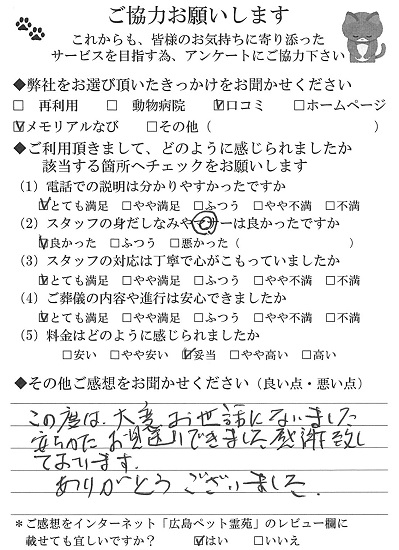 ご協力お願いします
これからも、皆様のお気持ちに寄り添った
サービスを目指す為、アンケートにご協力下さい
◆弊社をお選び頂いたきっかけをお聞かせください
□ 再利用 □ 動物病院 ☑口コミ □ホームページ
☑メモリアルなび □その他（ ）
◆ご利用頂きまして、どのように感じられましたか
該当する箇所へチェックをお願いします
（1）電話での説明は分かりやすかったですか
☑とても満足 □やや満足 □ふつう □やや不満 □不満
（2）スタッフの身だしなみやマナーは良かったですか
☑良かった □ふつう □悪かった（ ）
（3）スタッフの対応は丁寧で心がこもっていましたか
☑とても満足 □やや満足 □ふつう □やや不満 □不満
（4）ご葬儀の内容や進行は安心できましたか
☑とても満足 □やや満足 □ふつう □やや不満 □不満
（5）料金はどのように感じられましたか
□安い □やや安い ☑妥当 □やや高い □高い
◆その他ご感想をお聞かせください（良い点・悪い点）
この度は、大変お世話になりました
安らかにお見送りできました感謝致し
ております。
ありがとうございました。
＊ご感想をインターネット「広島ペット霊苑」のレビュー欄に
載せても宜しいですか？ ☑はい □いいえ